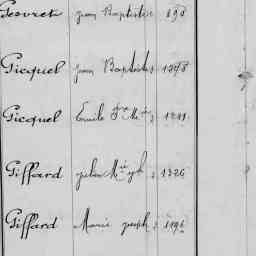 Gesvret jean Baptiste ; 898
Gicquel jean Baptiste ; 1348
Gicquel Emile Fr. Mie ; 1201
Giffard julien Mie jph ; 1326
Giffard Marie joseph ; 1196